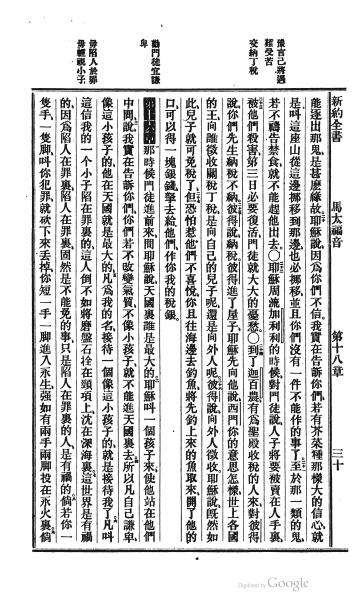 新約全書　馬太福音　第十八章　三十
豫言己將遇
難受苦
交納丁稅
勸門徒宜謙
卑
毋陷人於罪
毋輕視小子
能逐出那鬼是甚麽緣故耶穌說因為你們不信我實在告訴你們若有芥菜種那樣大的信心就
是叫這座山從這邊挪移到那邊也必挪移並且你們沒有一件不能作的事了至於那一類的鬼
若不禱告禁食就不能趕他出去〇耶穌周流加利利的時候對門徒說人子將要被賣在人手裏
被他們殺害第三日必要復活門徒就大大的憂愁〇到了迦百農有為聖殿收稅的人來對彼得
說你們先生納稅不納彼得說納稅彼得進了屋子耶穌先向他說西門你的意思怎樣世上各國
的王向誰徵收關稅丁稅是向自己的兒子呢還是向外人呢彼得說向外人徵收耶穌說旣然如
此兒子就可免稅了但恐怕惹他們不喜悅你且往海邊去釣魚將先釣上來的魚取來開了他的
口可以得一塊銀錢拏去給他們作你我的稅銀
第十八章那時候門徒進前來問耶穌說天國裏誰是最大的耶穌叫一個孩子來使他站在他們
中間說我實在告訴你們你們若不改變氣質不像小孩子就不能進天國裏去所以凡自己謙卑
像這小孩子的他在天國就是最大的凡為我的名接待一個像這小孩子的就是接待我了凡叫
這信我的一個小子陷在罪裏的這人倒不如將磨盤石拴在頸項上沈在深海裏這世界是有禍
的因為陷人在罪裏陷人在罪裏固然是不能免的事只是陷人在罪裏的人是有禍的倘若你一
隻手一隻脚叫你犯罪就砍下來丟掉你短一手一脚進入永生强如有兩手兩脚投在永火裏倘
Digitized by Google